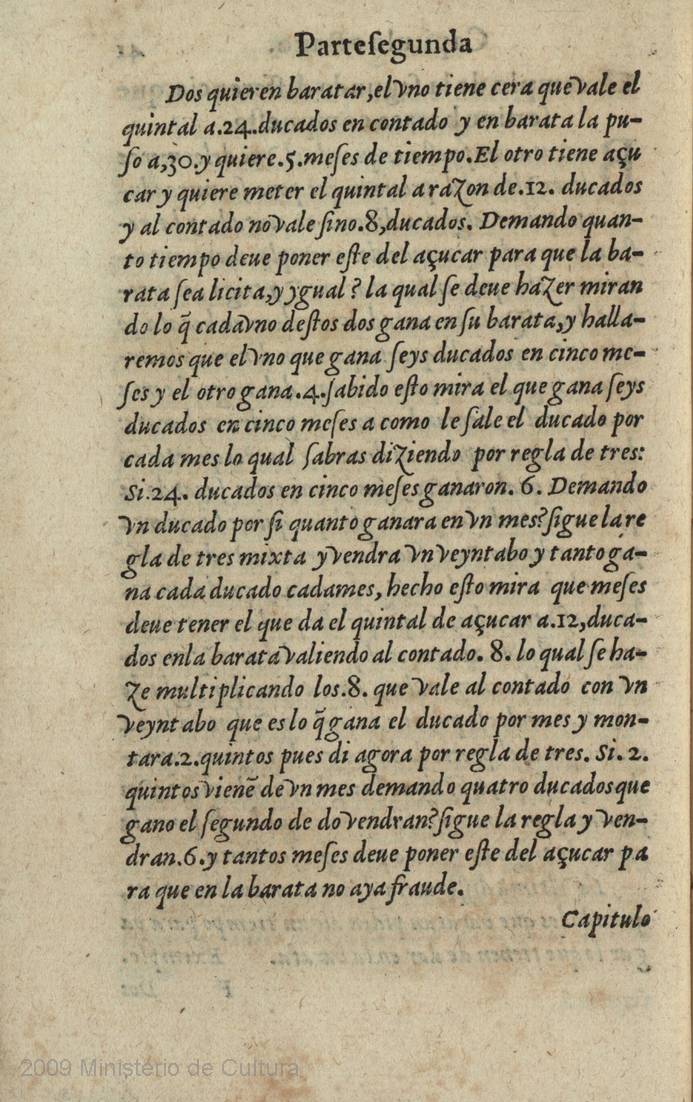 Parte ſegunda
Dos quieren baratar, el vno tiene cera que vale el
quintal a.24.ducados en contado y en barata la pu-
ſo a,30.y quiere.5.meſes de tiempo.El otro tiene açu
car y quiere meter el quintal a razon de.12. ducados
y al contado no vale ſino.8,ducados. Demando quan-
to tiempo deue poner eſte del açucar para que la ba-
rata ſea licita,y ygual? la qual ſe deue hazer miran
do lo q̃ cada vno deſtos dos gana en ſu barata,y halla-
remos que el vno que gana ſeys ducados en cinco me-
ſes y el otro gana.4.ſabido eſto mira el que gana ſeys
ducados en cinco meſes a como le ſale el ducado por
cada mes lo qual ſabras diziendo por regla de tres:
Si.24. ducados en cinco meſes ganaron. 6. Demando
vn ducado por ſi quanto ganara en vn mes?ſigue la re
gla de tres mixta y vendra vn veyntabo y tanto ga-
na cada ducado cada mes, hecho eſto mira que meſes
deue tener el que da el quintal de açucar a.12,duca-
dos en la barata valiendo al contado. 8. lo qual ſe ha-
ze multiplicando los.8. que vale al contado con vn
veyntabo que es lo q̃ gana el ducado por mes y mon-
tara.2.quintos pues di agora por regla de tres. Si. 2.
quintos vienẽ de vn mes demando quatro ducados que
gano el ſegundo de do vendran?ſigue la regla y ven-
dran.6.y tantos meſes deue poner eſte del açucar pa
ra que en la barata no aya fraude.
Capitulo
2009 Ministério de Cultura